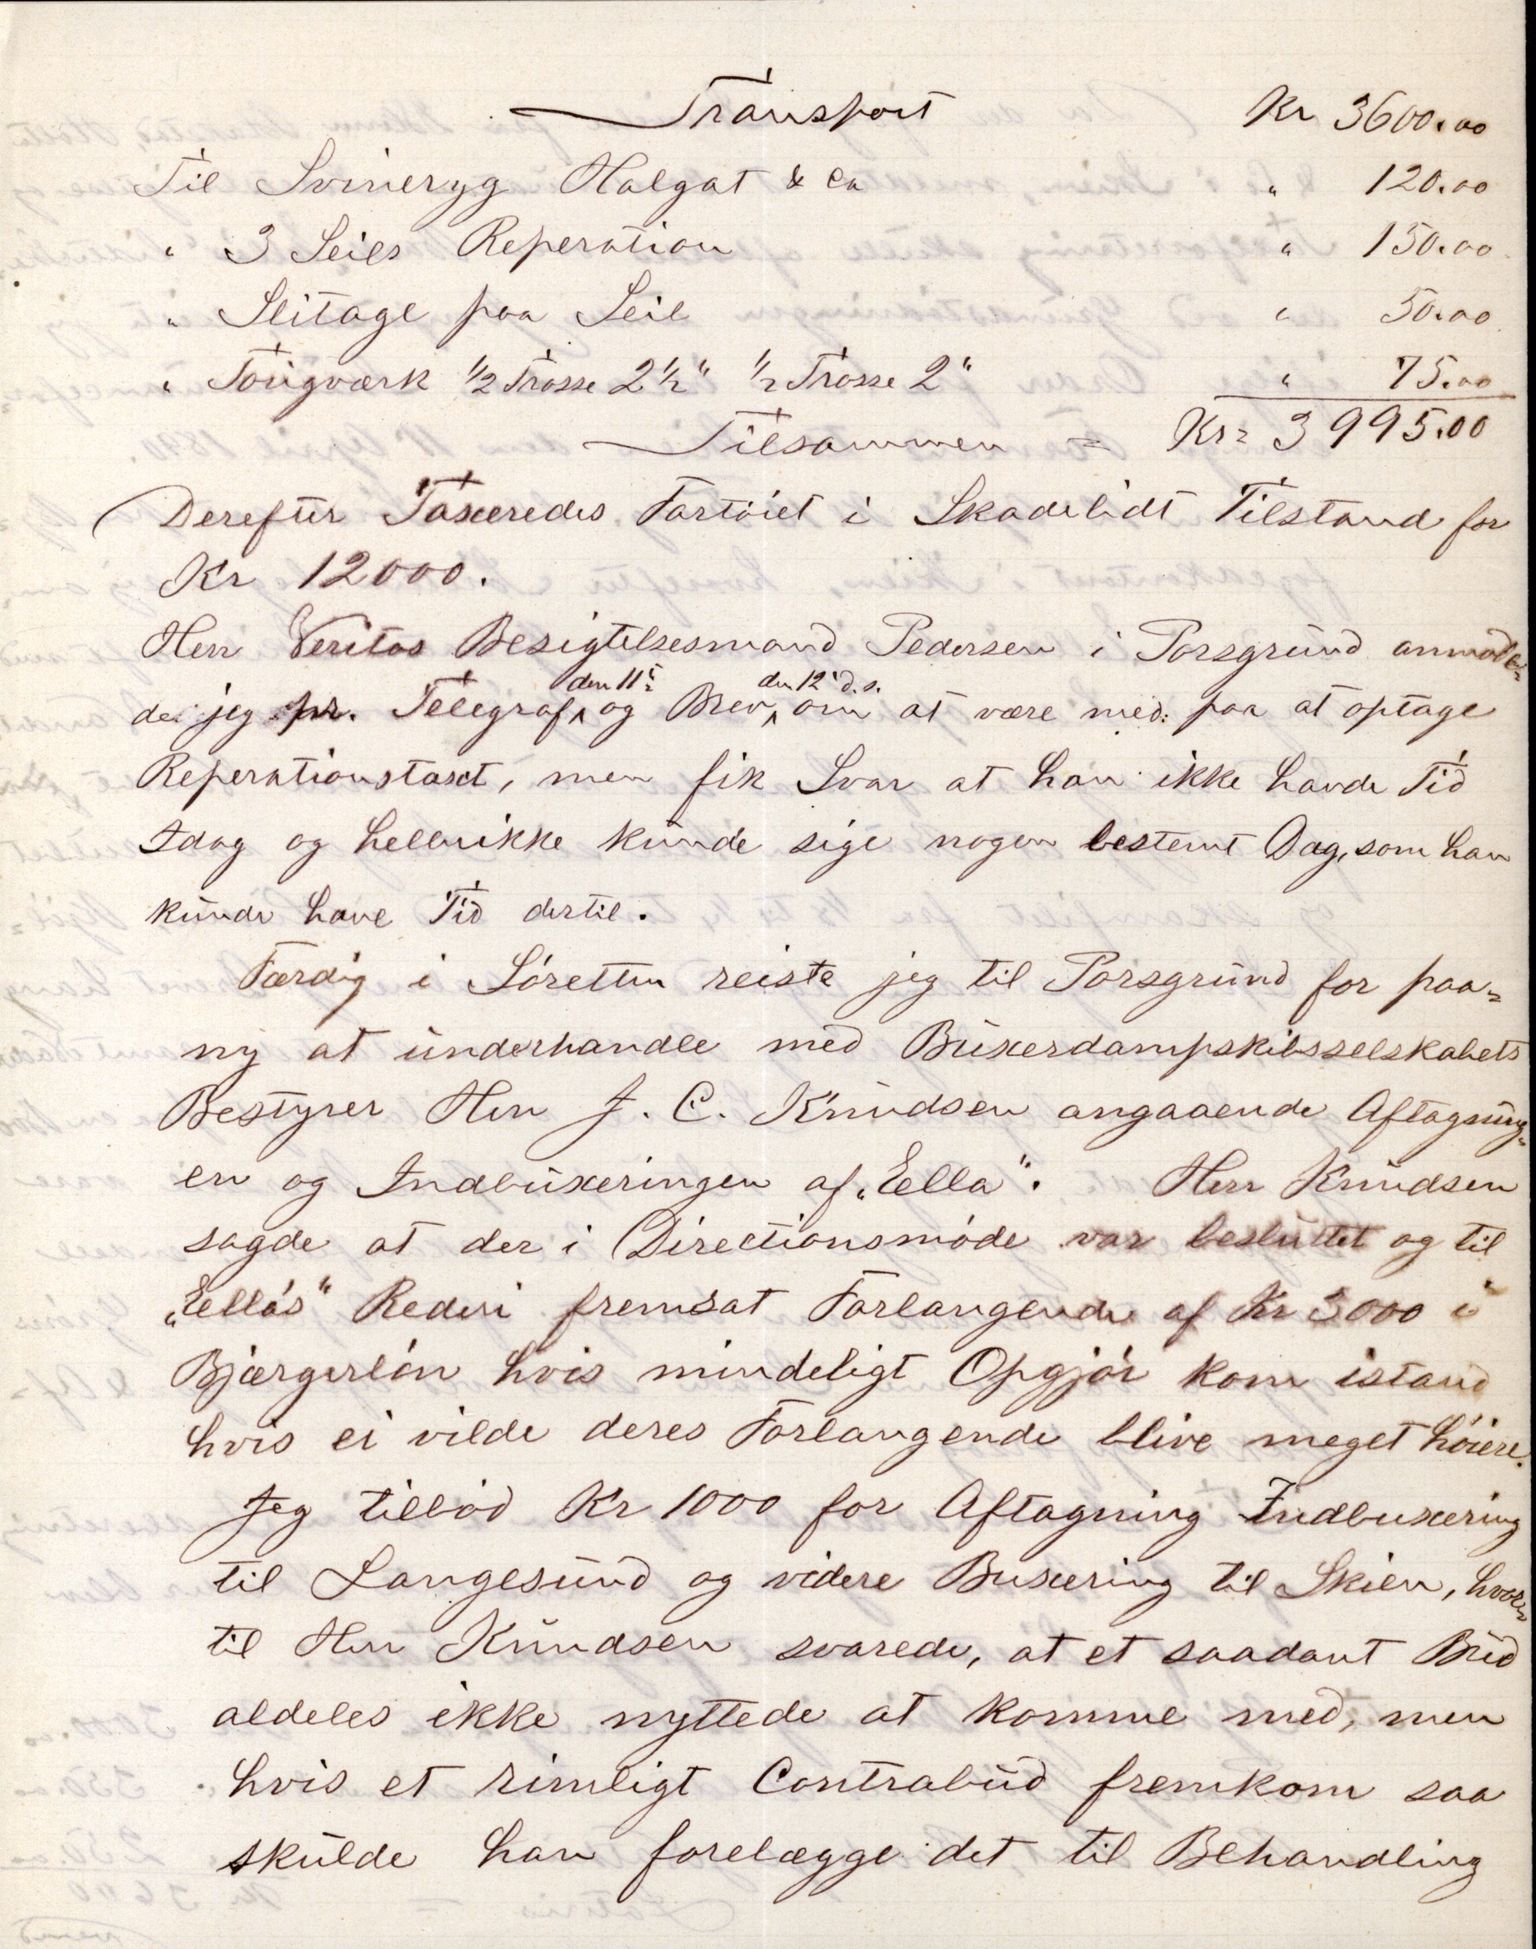 Transport Kr 3600.00
Til Svineryg Halgat & Co " 120.00
" 3 Seils Reperation " 150.00
" Slitage paa Seil " 50.00
" Tougværk 1/2 Trosse 2 1/2" 1/2 Trosse 2" " 75.00
Tilsammen = Kr= 3995.00
Derefter Taxeredes Fartöiet i Skadelidt Tilstand for
Kr 12000.
Herr Veritas Besigtelsesmand Pedersen i Porsgrund anmode=
de jeg pr. Telegraf den 11te og Brev den 12' d.s. om at være med paa at optage
Reperationstaxt, men fik Svar at han ikke havde Tid
Idag og hellerikke kunde sige nogen bestemt Dag, som han
kunde have Tid dertil.
Færdig i Söretten reiste jeg til Porsgrund for paa=
ny at underhandle med Buxerdampskibsselskabets
Bestyrer Herr J. C. Knudsen angaaende Aftagning=
en og Indbuxeringen af „Ella". Herr Knudsen
sagde at der i Directionsmöde var besluttet og til
„Ella's" Rederi fremsat Forlangende af Kr 3000 i
Bjærgerlön hvis mindeligt Opgjör kom istand
hvis ei vilde deres Forlangende blive meget höiere.
Jeg tilböd Kr 1000 for Aftagning Indbuxering
til Langesund og videre Buxering til Skien, hvor=
til Herr Knudsen svarede, at et saadant Bud
aldeles ikke nyttede at komme med, men
hvis et rimligt Contrabud fremkom saa
skulde han forelægge det til Behandling